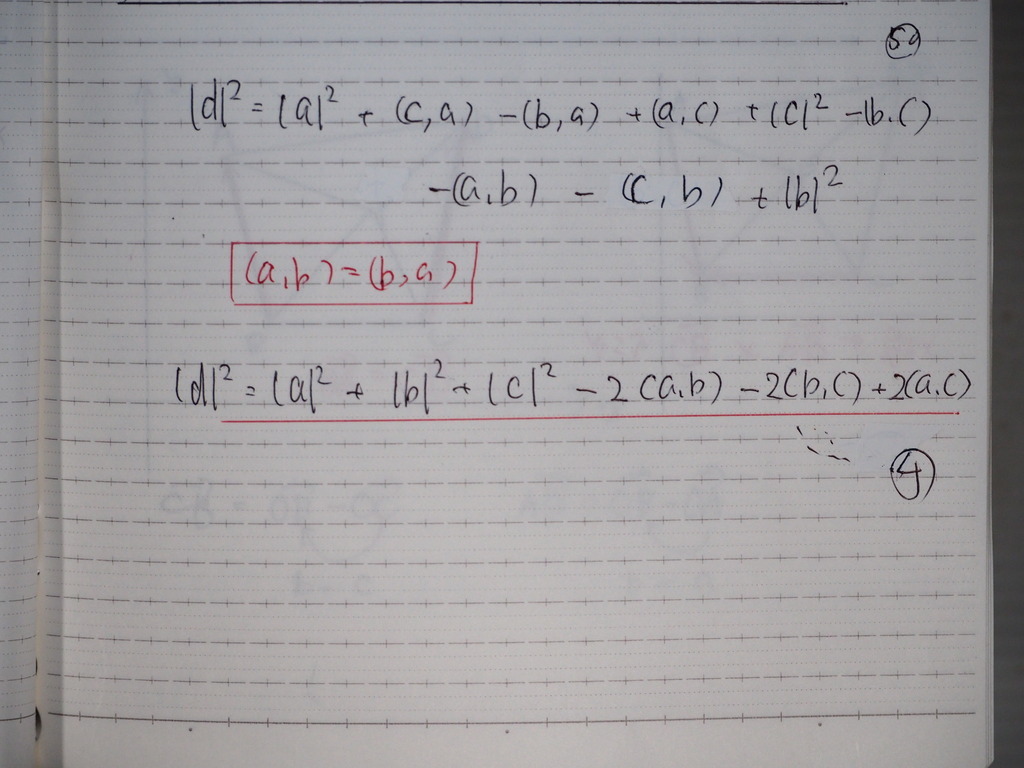 59
|d|² = |a|² + (c,a) -(b,a) +(a,c) +|c|² -(b.c)
-(a,b) - (c,b) + |b|²
(a,b)=(b,a)
|d|² = |a|² + |b|² + |c|² - 2(a.b) - 2(b,c) + 2(a.c)
4